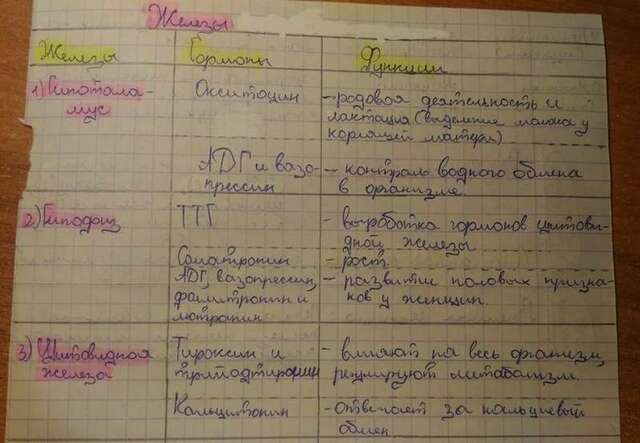 Железы
Железы Гормоны Функции
1) Гипотала- Окситоцин – родовая деятельность и
мус лактация (выделение молока у
кормящей матери)
АДГ и вазо- – контроль водного обмена
прессин в организме.
2) Гипофиз ТТГ – выработка гормонов щитови-
дной железы
Соматропин – рост.
АДГ, вазопрессин, – развитие половых призна-
фолитропин и ков у женщин.
лютропин
3) Щитовидная Тироксин и – влияют на весь организм,
железа трийодтиронин регулируют метаболизм.
Кальцитонин – отвечает за кальциевый
обмен